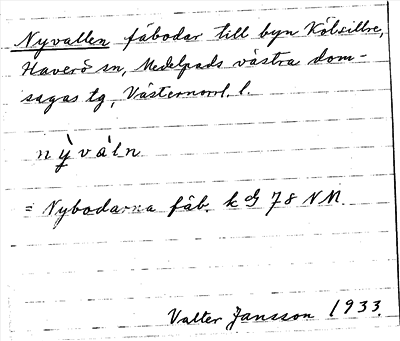 Nyvallen fäbodar till byn Kölsillre,
Haverö sn, Medelpads västra dom-
sagas tg, Västernorrl. l.
nỳvàln
= Nybodarna fäb. k 78 NM.
Valter Jansson 1933.